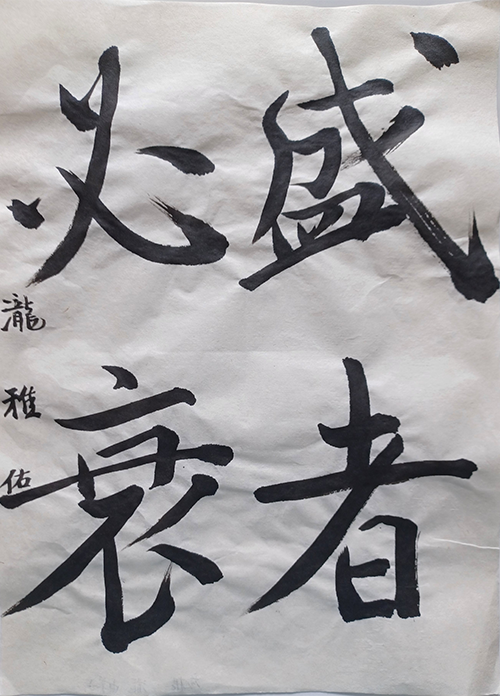 盛者
必衰
瀧雅佑